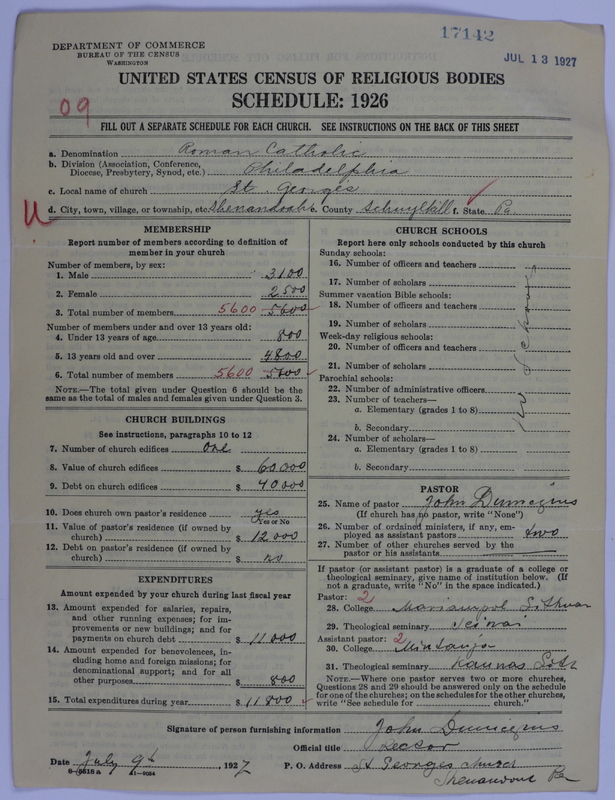 17142
JUL 13 1927
DEPARTMENT OF COMMERCE
BUREAU OF THE CENSUS
WASHINGTON
UNITED STATES CENSUS OF RELIGIOUS BODIES
SCHEDULE: 1926
09
FILL OUT A SEPARATE SCHEDULE FOR EACH CHURCH. SEE INSTRUCTIONS ON THE BACK OF THIS SHEET
a. Denomination Roman Catholic
b. Division (Association, Conference, Diocese, Presbytery, Synod, etc.) Philadelphia
c. Local name of church St. Georges
d. City, town, village, or township, etc. Shenandoah e. County Schuylkill f. State Pa.
U
MEMBERSHIP
Report number of members according to definition of
member in your church
Number of members, by sex:
1. Male 3100
2. Female 2500
3. Total number of members 5600 5600
Number of members under and over 13 years old:
4. Under 13 years of age 800
5. 13 years old and over 4800
6. Total number of members 5600 5600
NOTE.—The total given under Question 6 should be the
same as the total of males and females given under Question 3.
CHURCH BUILDINGS
See instructions, paragraphs 10 to 12
7. Number of church edifices One
8. Value of church edifices $ 60000
9. Debt on church edifices $ 40000
10. Does church own pastor's residence yes
Yes or No
11. Value of pastor's residence (if owned by
church) $ 12000
12. Debt on pastor's residence (if owned by
church) $ no
EXPENDITURES
Amount expended by your church during last fiscal year
13. Amount expended for salaries, repairs,
and other running expenses; for im-
provements or new buildings; and for
payments on church debt $ 11000
14. Amount expended for benevolences, in-
cluding home and foreign missions; for
denominational support; and for all
other purposes $ 800
15. Total expenditures during year $ 11800
CHURCH SCHOOLS
Report here only schools conducted by this church
Sunday schools:
16. Number of officers and teachers
17. Number of scholars
Summer vacation Bible schools:
18. Number of officers and teachers
19. Number of scholars
Week-day religious schools:
20. Number of officers and teachers
21. Number of scholars
Parochial schools:
22. Number of administrative officers
23. Number of teachers—
a. Elementary (grades 1 to 8)
b. Secondary
24. Number of scholars—
a. Elementary (grades 1 to 8)
b. Secondary
No School
PASTOR
25. Name of pastor John
(If church has no pastor, write "None")
26. Number of ordained ministers, if any, em-
ployed as assistant pastors two
27. Number of other churches served by the
pastor or his assistants
If pastor (or assistant pastor) is a graduate of a college or
theological seminary, give name of institution below. (If
not a graduate, write "No" in the space indicated.)
Pastor: 2
28. College
29. Theological seminary
Assistant pastor: 2
30. College
31. Theological seminary Kaunas
NOTE.—Where one pastor serves two or more churches,
Questions 28 and 29 should be answered only on the schedule
for one of the churches; on the schedules for the other churches,
write "See schedule for church."
Signature of person furnishing information John
Official title Rector
Date July 9th, 1927 P. O. Address St Georges church
Shenandoah Pa
8-5518 a 11-9054